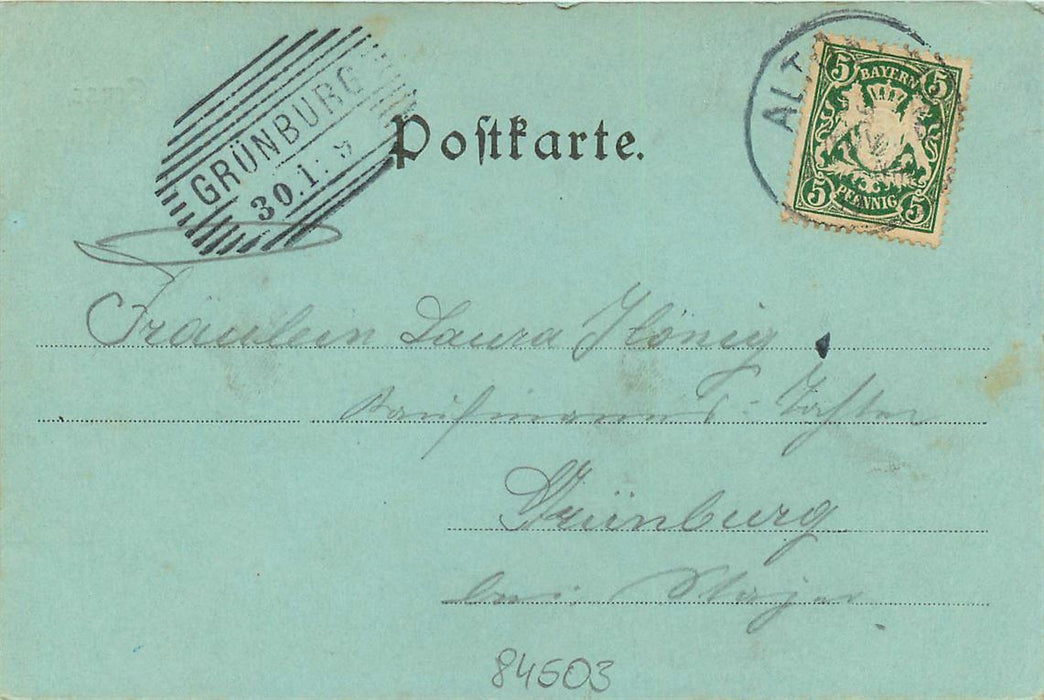 GRÜNBURG
30.1. 9
Postkarte.
ALT
5 BAYERN 5
5 PFENNIG 5
Fräulein Laura König
Kaufmanns-Tochter
Grünburg
bei Steyer
84503